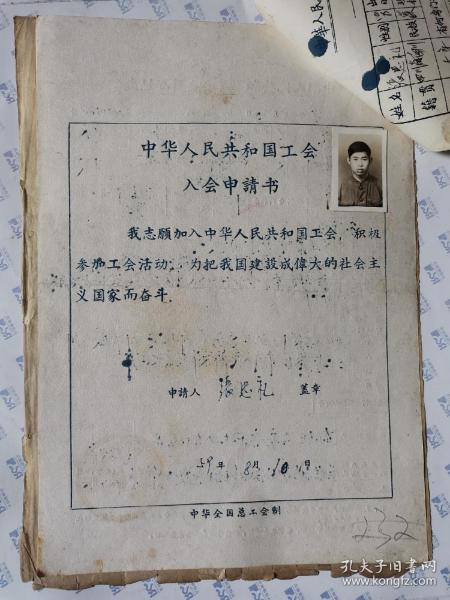 中华人民共和国工会
入会申請书
我志願加入中华人民共和国工会，积极
参加工会活动，为把我国建設成偉大的社会主
义国家而奋斗．
申請人 張思礼 蓋章
59年 8月 10日
中华全国总工会制
232
姓名 張思礼 性别
籍貫 四川 民族
华人民
孔夫子旧书网
www.kongfz.com